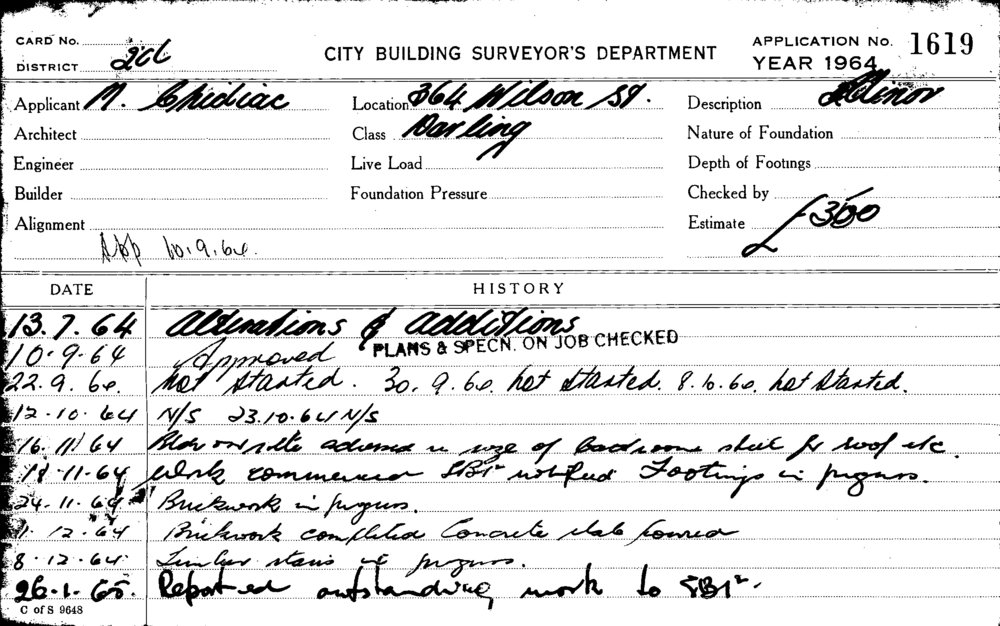 CARD No.
DISTRICT
CITY BUILDING SURVEYOR'S DEPARTMENT
APPLICATION No. 1619
YEAR 1964
Applicant N. Chidiac
Location 364 Wilson St.
Description Minor
Architect
Class Darling
Nature of Foundation
Engineer
Live Load
Depth of Footings
Builder
Foundation Pressure
Checked by
Alignment
Estimate £300
App 10.9.64.
DATE HISTORY
13.7.64 Alterations & additions
10.9.64 Approved PLANS & SPECN. ON JOB CHECKED
22.9.64. Not Started. 30.9.64. Not Started. 8.10.64. Not Started.
12.10.64 N/S 23.10.64 N/S
16.11.64 on site advised size of bathroom for roof etc.
18.11.64 Work commenced notified Footings in progress.
24.11.64 Brickwork in progress.
12.64 Brickwork completed Concrete slab poured
8.12.64. Timber stairs etc progress.
26.1.65. Reported outstanding work to
C of S 9648